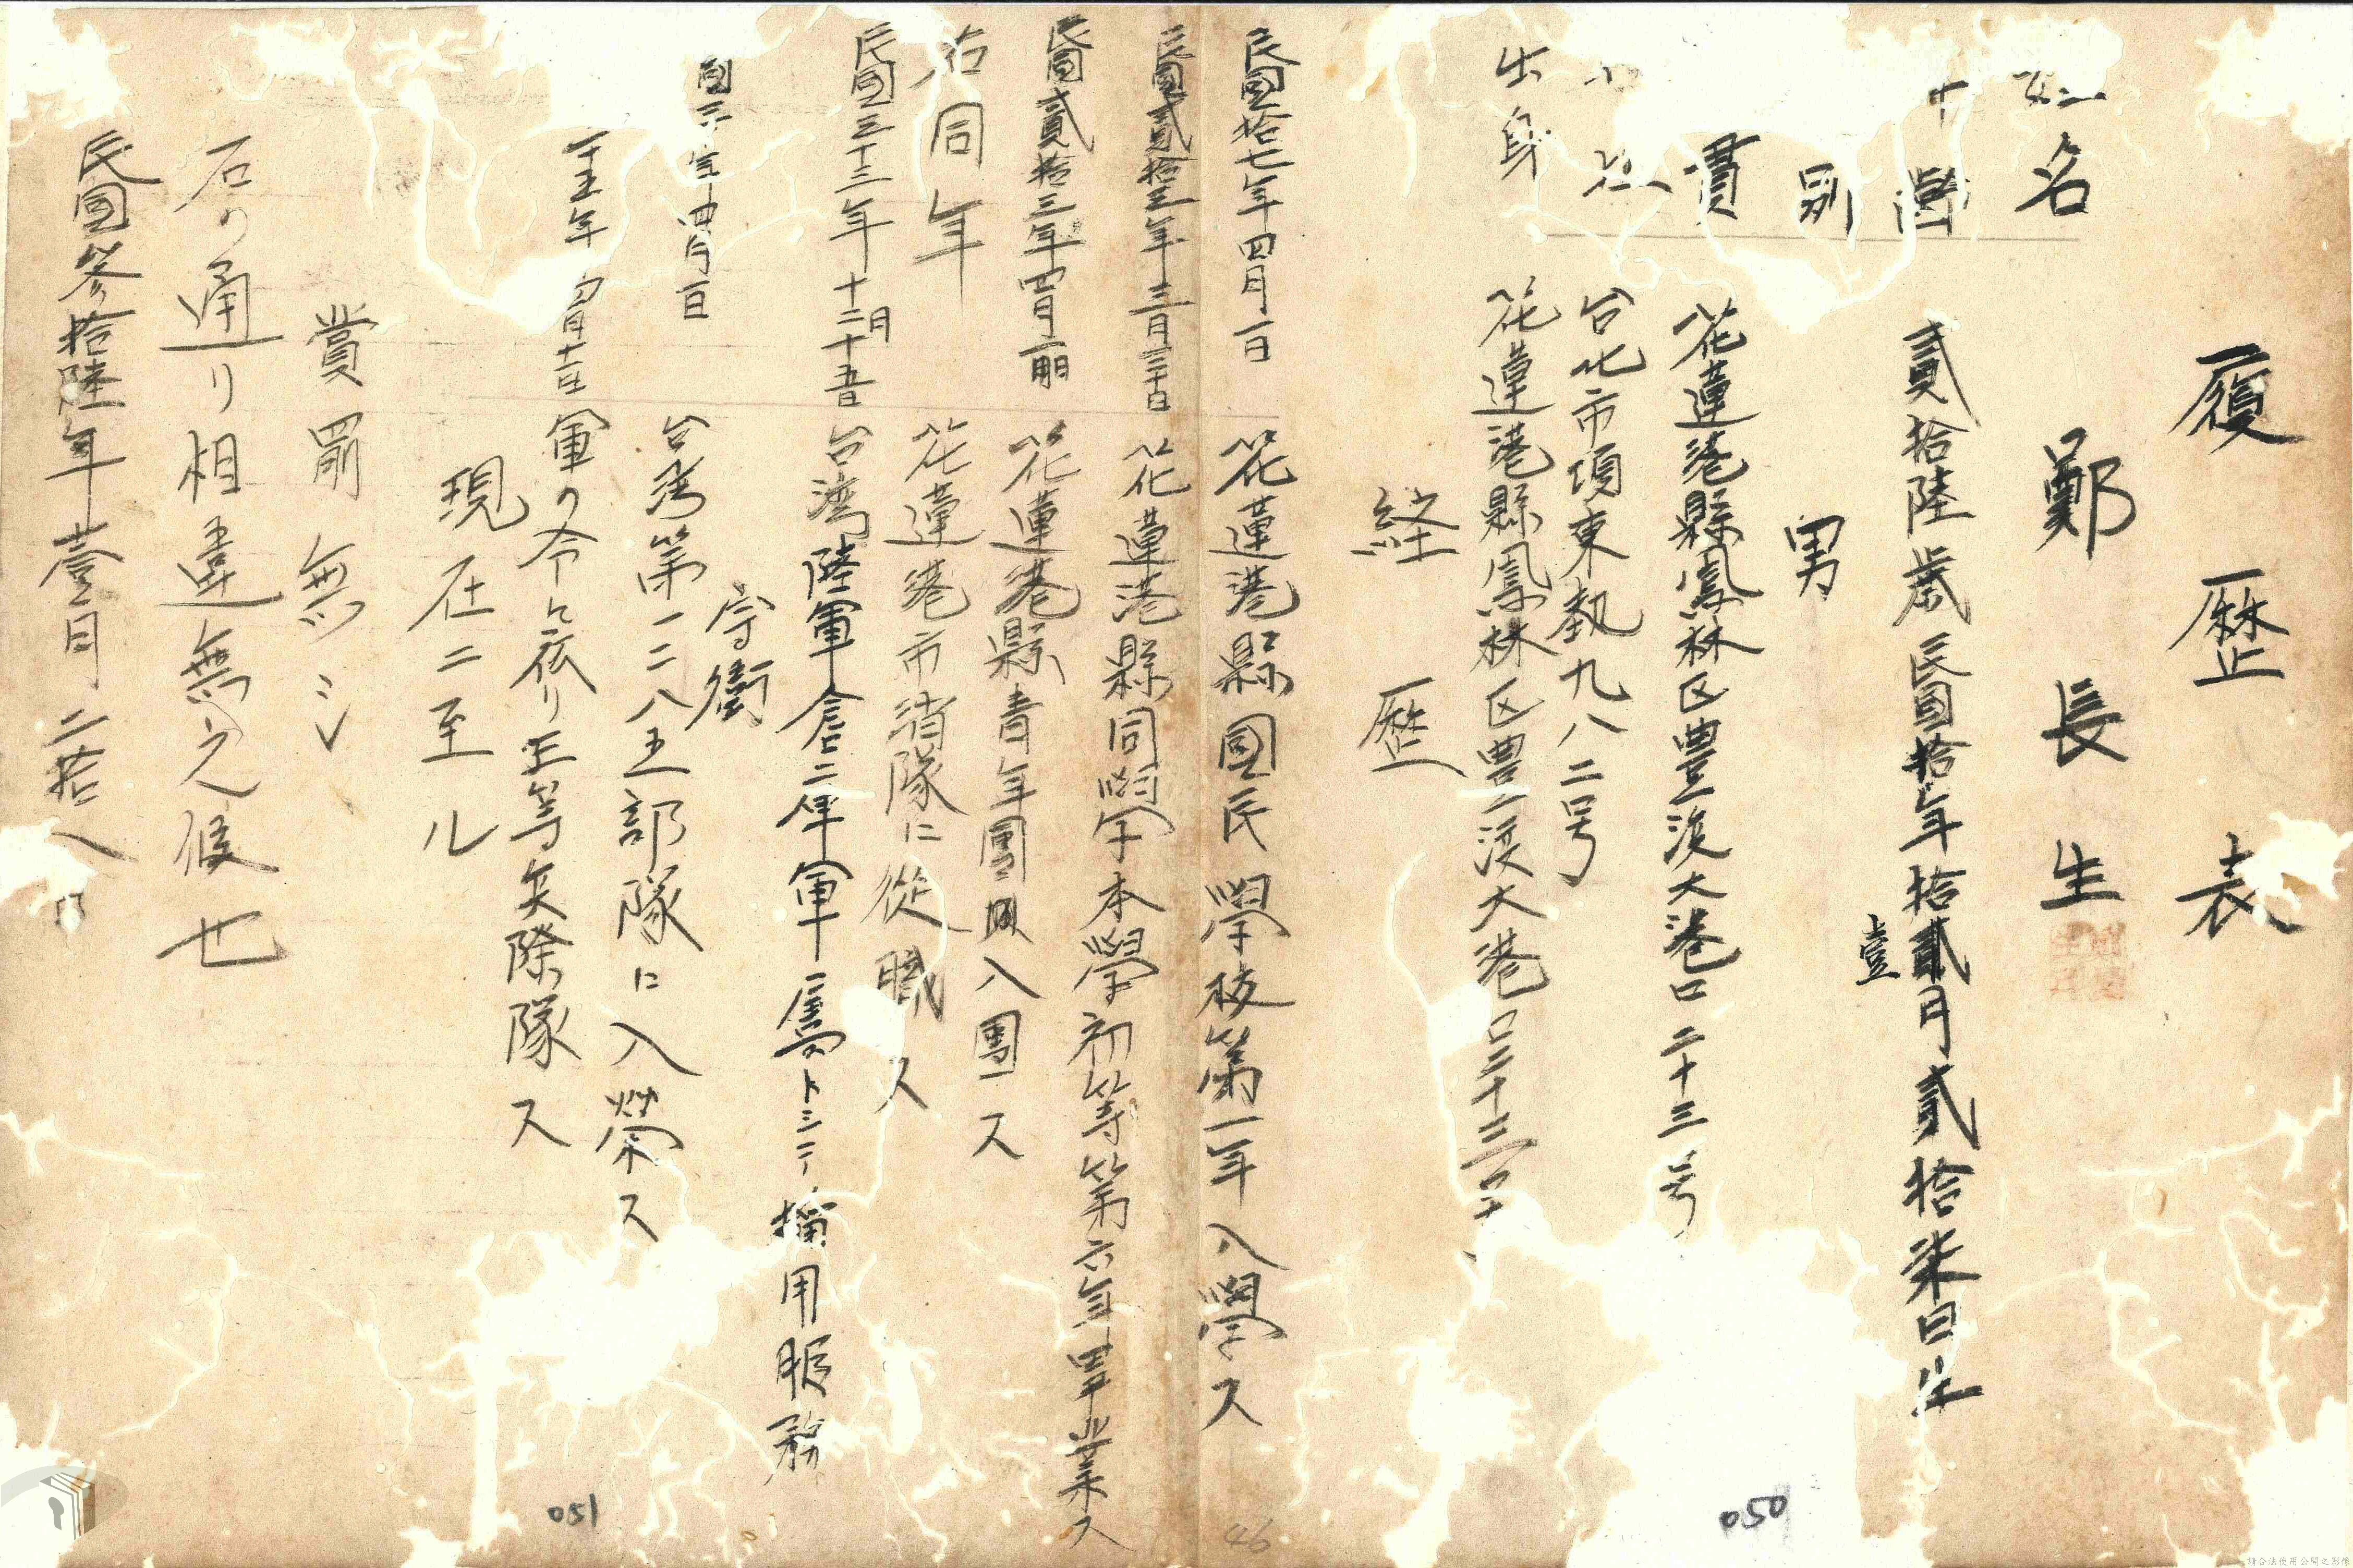 履歴表
姓名 鄭長生
年齒 貳拾陸歳 民國拾年拾貳月貳拾柒日生
壹
別 男
貫 花蓮港縣鳳林区豊濱大港口二十三号
住 台北市項東勢九八二号
出身 花蓮港縣鳳林区豊濱大港口二十三号
経歴
民國拾七年四月一日 花蓮港縣國民學校第一年入學ス
民國貳拾三年三月三十日 花蓮港縣同學本學初等第六年畢業ス
民國貳拾三年四月 花蓮港縣青年團入團ス
右同年 花蓮港市消隊に從職ス
民國三十三年十二月二十五日 台湾陸軍倉二庫軍属トシテ 用服務
守衛
國 年四月一日 台湾第一二八五部隊に入榮ス
年 月 日 軍の令ニ依リ 等兵除隊ス
現在ニ至ル
賞罰無シ
右の通り相違無之候也
民國参拾陸年壹月二拾八日
050
051
46
請合法使用公開之影像